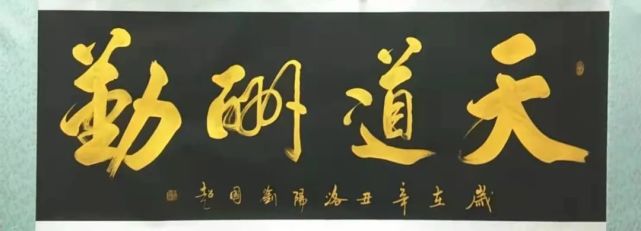 天道酬勤
歲在辛丑洛陽劉國超